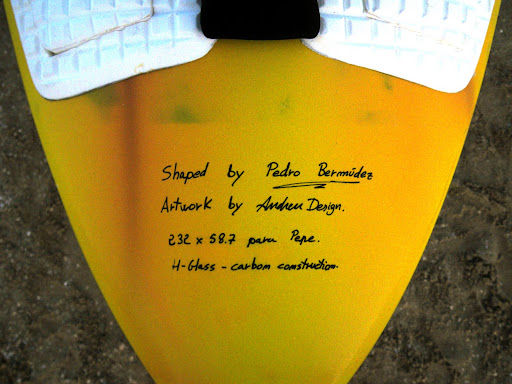 Shaped by Pedro Bermúdez
Artwork by Andreu Design.
232 x 58.7 para Pepe.
H-Glass - carbom construction.